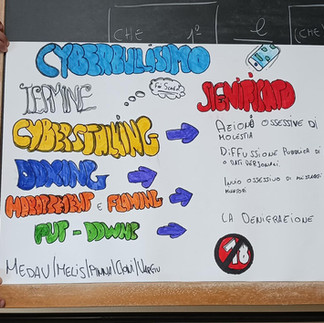 CHE 1º
CYBERBULLISMO
TERMINE
SIGNIFICATO
CYBERSTALKING
AZIONI OSSESSIVE DI
MOLESTIA
DOXING
DIFFUSIONE PUBBLICA DI
DATI PERSONALI
HARASSMENT E FLAMING
INVIO OSSESSIVO DI MESSAGGI
PUT-DOWNS
LA DENIGRAZIONE
MEDAU/MELIS/PINNA/